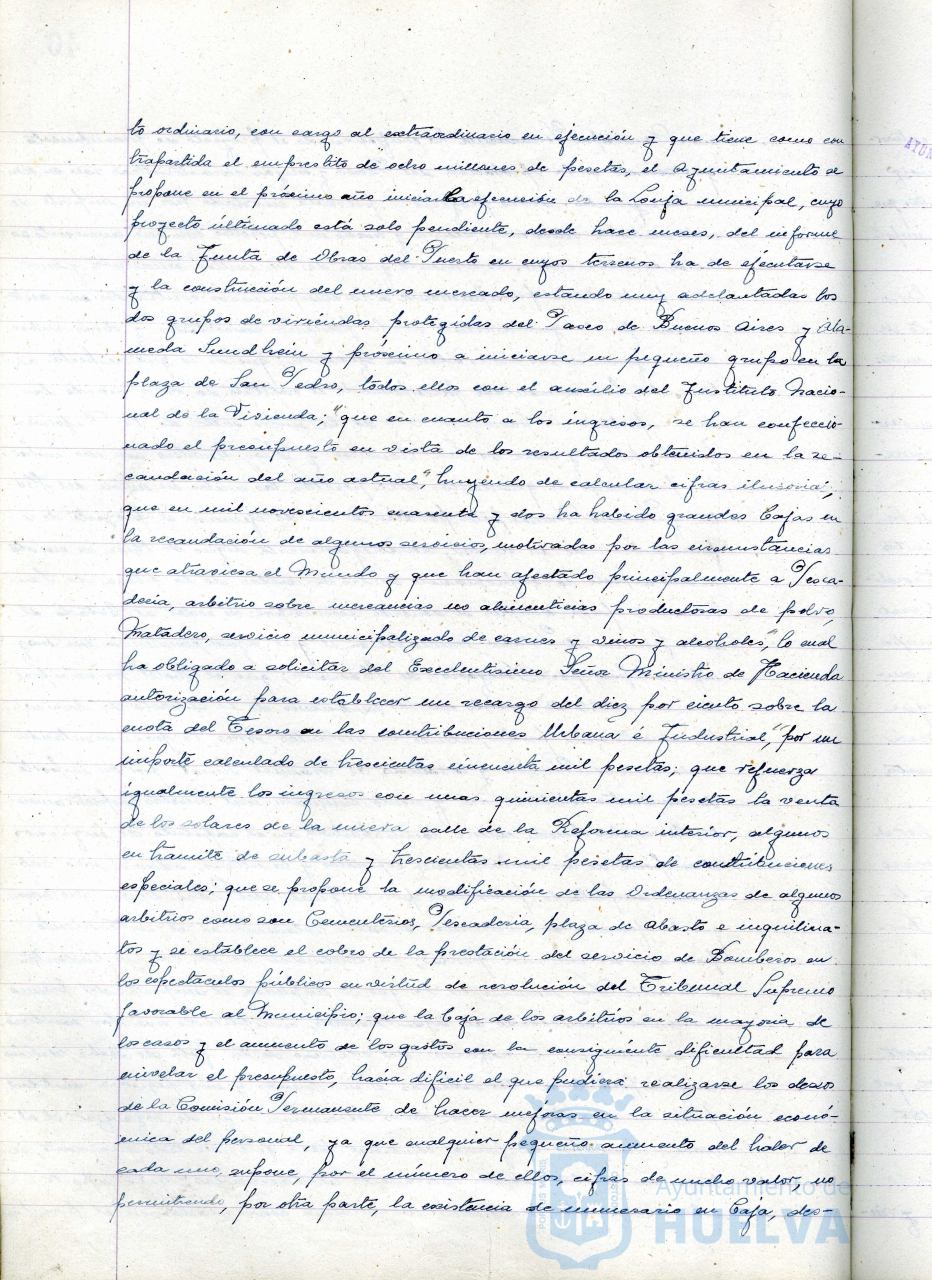 to ordinario, con cargo al extraordinario en ejecución y que tiene como con
trapartida el emprestito de ocho millones de pesetas, el Ayuntamiento se
propone en el próximo año iniciar la ejecución de la Lonja municipal, cuyo
proyecto últimado está solo pendiente, desde hace meses, del informe
de la Junta de Obras del Puerto en cuyos terrenos ha de ejecutarse
y la construcción del nuevo mercado, estando muy adelantadas los
dos grupos de viviendas protegidas del Paseo de Buenos Aires y Ala-
meda Sundhein y próximo a iniciarse un pequeño grupo en la
plaza de San Pedro, todos ellos con el auxilio del Instituto Nacio-
nal de la Vivienda; "que en cuanto a los ingresos, se han confeccio-
nado el presupuesto en vista de los resultados obtenidos en la re-
caudación del año actual", huyendo de calcular cifras ilusorias;
que en mil novecientos cuarenta y dos ha habido grandes bajas en
la recaudación de algunos servicios, motivadas por las circunstancias
que atraviesa el Mundo y que han afectado principalmente a Pesca-
dería, arbitrio sobre mercancías no alimenticias productoras de polvo,
Matadero, servicio municipalizado de carnes y vinos y alcoholes", lo cual
ha obligado a solicitar del Excelentísimo Señor Ministro de Hacienda
autorización para establecer un recargo del diez por ciento sobre la
cuota del Tesoro en las contribuciones Urbana é Industrial," por un
importe calculado de trescientas cincuenta mil pesetas; que refuerza
igualmente los ingresos con unas quinientas mil pesetas la venta
de los solares de la nueva calle de la Reforma interior, algunos
en tramite de subasta y trescientas mil pesetas de contribuciones
especiales; que se propone la modificación de las Ordenanzas de algunos
arbitrios como son Cementerios, Pescadería, plaza de abasto e inquilina-
tos y se establece el cobro de la prestación del servicio de Bomberos en
los espectáculos públicos en virtud de resolución del Tribunal Supremo
favorable al Municipio; que la baja de los arbitrios en la mayoria de
los casos y el aumento de los gastos con la consiguiente dificultad para
nivelar el presupuesto, hacía difícil el que pudiera realizarse los deseos
de la Comisión Permanente de hacer mejoras en la situación econó-
mica del personal, ya que cualquier pequeño aumento del haber de
cada uno, supone, por el número de ellos, cifras de mucho valor, no
permitiendo, por otra parte, la existencia de numerario en Caja, des-
Ayuntamiento de
HUELVA